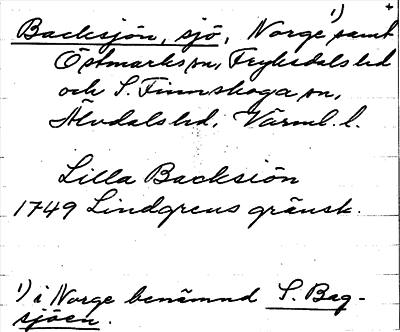 Backsjön, sjö, Norge ¹) samt +
Östmarks sn, Fryksdals hd
och S. Finnskoga sn,
Älvdals hd, Värml. l.
Lilla Backsiön
1749 Lindgrens gränsk.
¹) i Norge benämnd S. Bag-
sjöen.